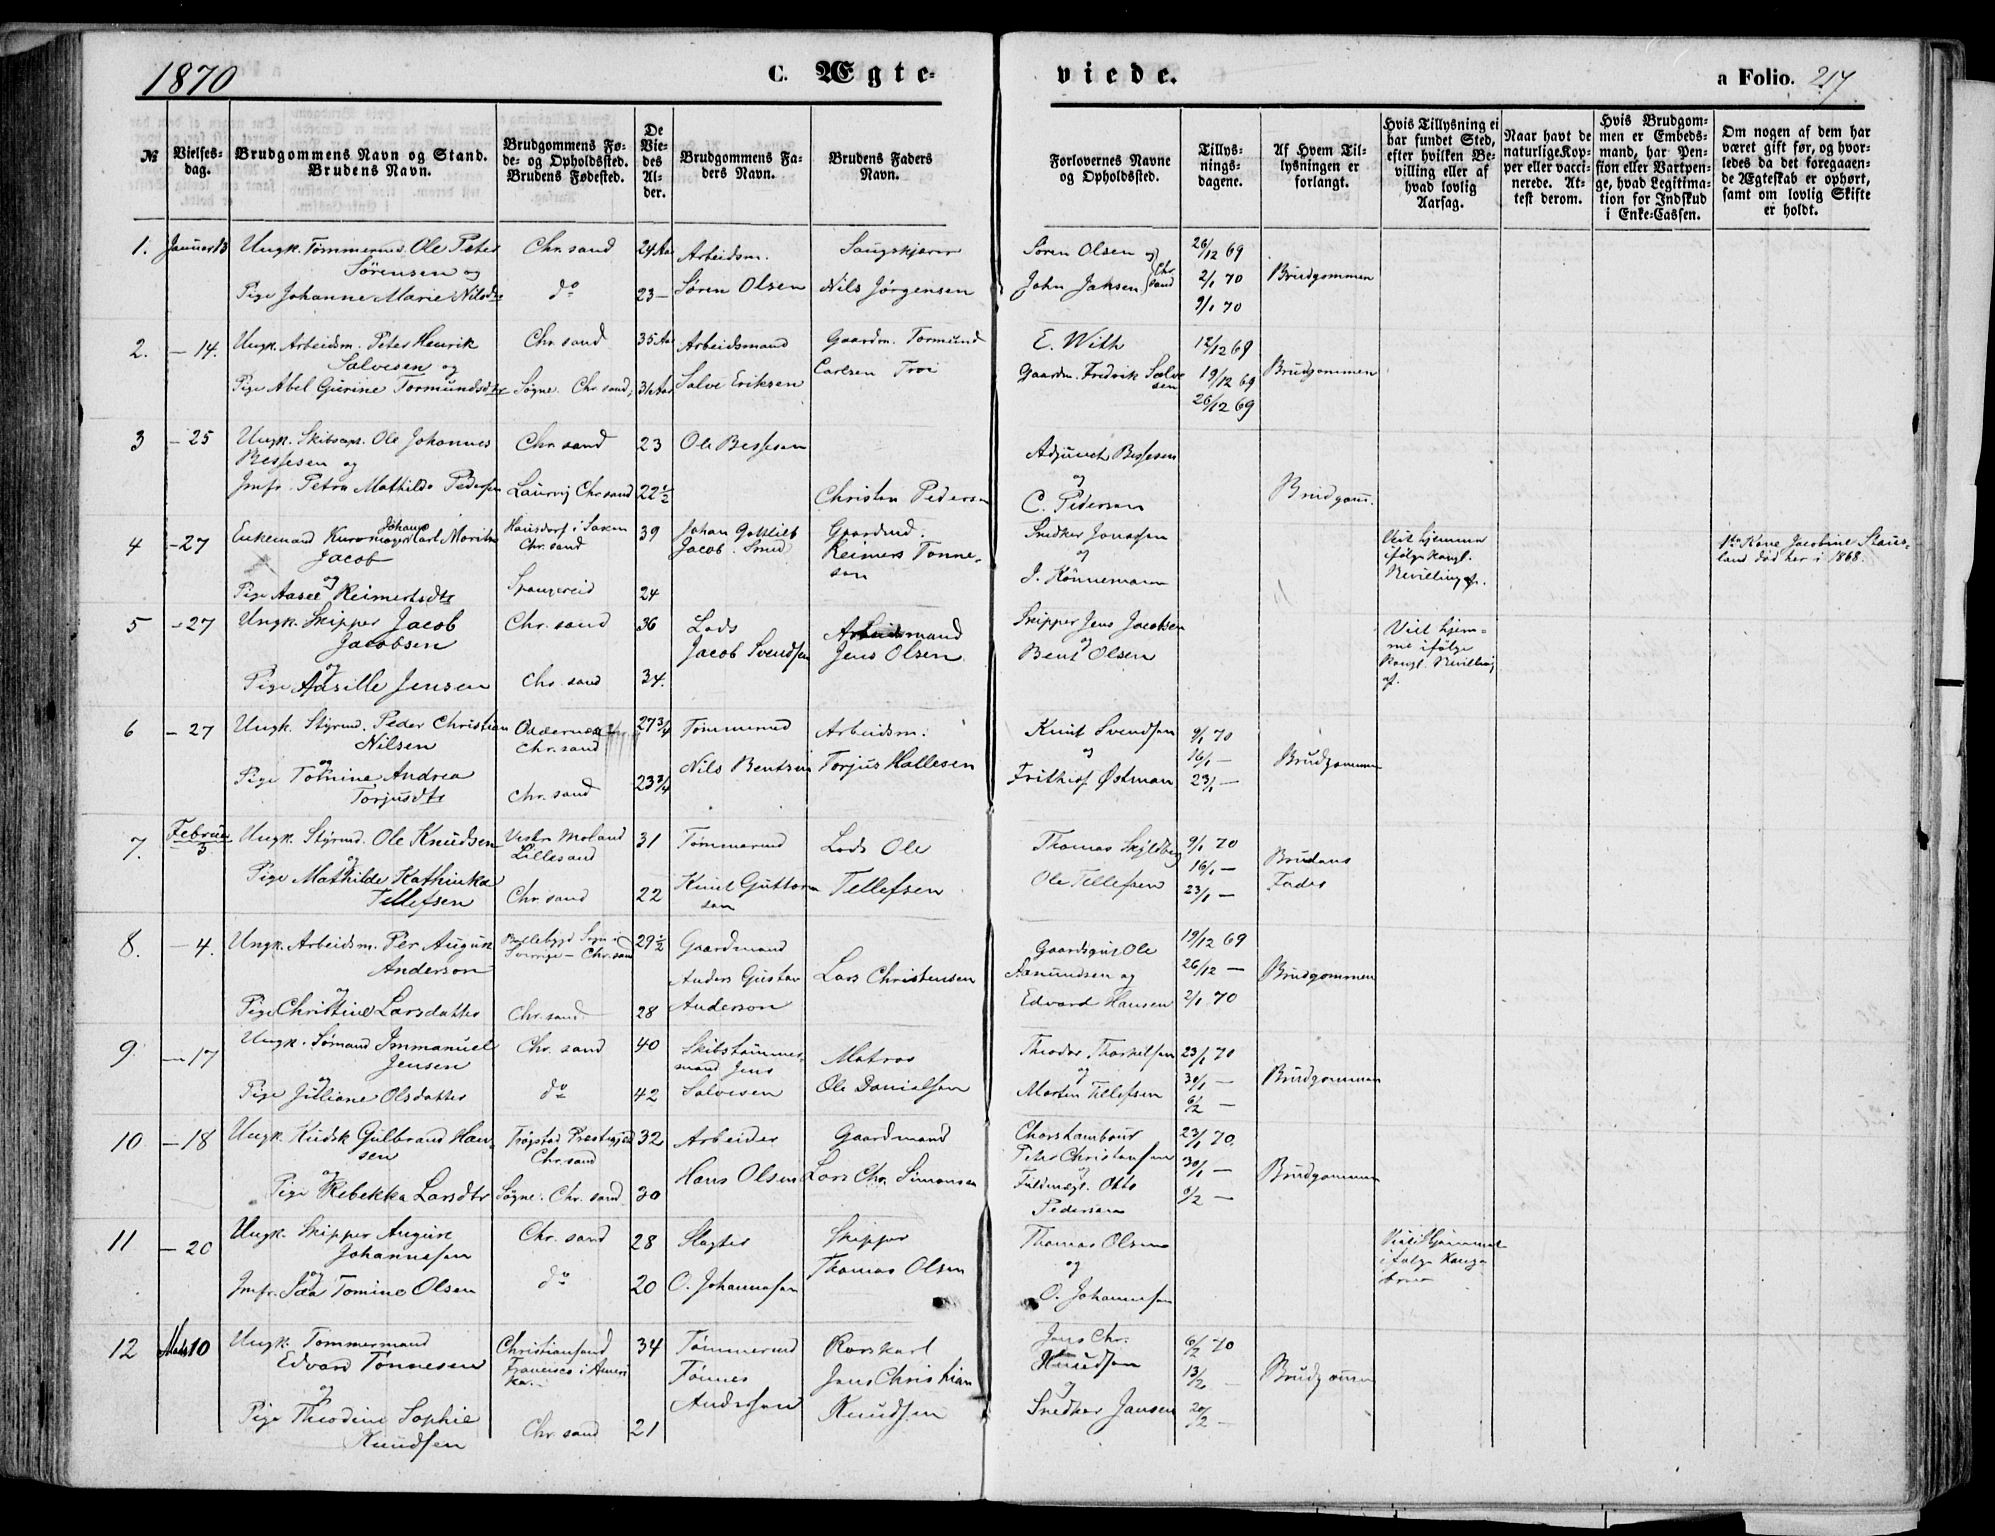 1870
C. Ægte-
viede.
a Folio. 217
№
Vielses-
dag.
Brudgommens Navn og Stand.
Brudens Navn.
Brudgommens Fø-
de- og Opholdssted.
Brudens Fødested.
De
Vie-
des
Al-
der.
Brudgommens Fa-
ders Navn.
Brudens Faders
Navn.
Forlovernes Navne
og Opholdssted.
Tillys-
nings-
dagene.
Af Hvem Til-
lysningen er
forlangt.
Hvis Tillysning ei
har fundet Sted,
efter hvilken Be-
villing eller af
hvad lovlig
Aarsag.
Naar havt de
naturlige Kop-
per eller vacci-
nerede. At-
test derom.
Hvis Brudgom-
men er Embeds-
mand, har Pen-
sion eller Vartpen-
ge, hvad Legitima-
tion for Indskud
i Enke-Cassen.
Om nogen af dem har
været gift før, og hvor-
ledes da det foregaaen-
de Ægteskab er ophørt,
samt om lovlig Skifte
er holdt.
1. Januar 13
Ungk. Tømmermd. Ole Peter
Sørensen og
Pige Johanne Marie Nilsdtr
Chr. sand
do
24 Aar
23 —
Arbeidsm.
Søren Olsen
Nils Jörgensen
Søren Olsen og
John Jahsen
Chr.
sand
26/12 69
2/1 70
9/1 70
Brudgommen
2. — 14.
Ungk. Arbeidsm. Peter Henrik
Salvesen og
Pige Abel Gurine Tormundsdtr
Chr. sand
Søgne. Chr. sand
35 Aar
31 Aar
Arbeidsmand
Salve Eriksen
Gaardm. Tormund
Carlsen Troi
E. With
Gaardm. Fredrik Salve
sen
12/12 69
19/12 69
26/12 69
Brudgommen
3 — 25
Ungk. Skibscapt. Ole Johannes
Bessesen og
Jmfr. Petra Mathilde Pedersen
Chr. sand
Laurvig Chr. sand
23
22 1/2
Ole Bessesen
Christen Pedersen
Adjunct Bessesen
og
C. Pedersen
Brudgom.
4 — 27
Enkemand Kurvmager Johan Carl Moritz
Jacob
og
Pige Aasel Reimertsdtr
Hausdorf i Saxen
Chr. sand
Spangereid
39
24
Johan Gottlieb
Jacob. Smed
Gaardmd.
Reimers Tønne-
sen
Snedker Jonassen
og
J. Könnemann
Viet hjemme
ifølge kongl.
Bevilling af.
1ste Kone Jacobine Staus-
land død her i 1868.
5 — 27
Ungk. Skipper Jacob
Jacobsen
og
Pige Aasille Jensen
Chr. sand
Chr. sand
36
34.
Lods
Jacob Svendsen
Arbeidsmand
Jens Olsen
Skipper Jens Jacobsen
og
Bent Olsen
Viet hjem-
me ifølge
Kongl. Bevilling
af.
6 — 27
Ungk. Styrmd. Peder Christian
Nilsen
og
Pige Tomine Andrea
Torjusdtr
Oddernes
Chr. sand
Chr. sand
27 3/4
23 3/4
Tømmermd
Nils Bentsen
Arbeidsm.
Torjus Hallesen
Knut Svendsen
og
Frithiof Østman
9/1 70
16/1 —
23/1 —
Brudgommen
7. Februar 3.
Ungk. Styrmd. Ole Knudsen
og
Pige Mathilde Kathinka
Tellefsen
Vestre Moland
Lillesand
Chr. sand
31
22
Tømmermd
Knut Guttorm
sen
Lods Ole
Tellefsen
Thomas Skjldberg
Ole Tellefsen
9/1 70
16/1 —
23/1 —
Brudens
Fader
8. — 4.
Ungk. Arbeidsm. Per August
Anderson
og
Pige Christine Larsdatter
Sverrige — Chr. sand
Chr. sand
29 1/2
28
Gaardmand
Anders Gustav
Anderson
Lars Christensen
Gaardsgut Ole
Asmundsen og
Edvard Hansen
19/12 69
26/12 —
2/1 70
Brudgommen
9. — 17
Ungk. Sømand Immanuel
Jensen
og
Pige Juliane Olsdatter
Chr. sand
do
40
42
Skibstømmer-
mand Jens
Salvesen
Matros
Ole Danielsen
Theodor Thorkelsen
og
Morten Tellefsen
23/1 70
30/1 —
6/2 —
Brudgommen
10. — 18
Ungk. Kudsk Gulbrand Han-
sen
og
Pige Rebekka Larsdtr
Trøgstad Prestegjeld
Chr. sand
Søgne. Chr. sand
32
30
Arbeider
Hans Olsen
Gaardmand
Lars Chr. Simonsen
Chorstambour
Peter Christensen
og
Fuldmægt. Otto
Pedersen
23/1 70.
30/1 —
6/2 —
Brudgommen
11 — 20
Ungk. Skipper August
Johannesen
og
Jmfr. Tomine Olsen
Chr. sand
do
28
20
Slagter
O. Johannesen
Skipper
Thomas Olsen
Thomas Olsen
og
O. Johannesen
Viet Hjemme
ifølge Konge
brev
12 Mars 10
Ungk. Tømmermand
Edvard Tønnesen
og
Pige Theodine Sophie
Knudsen
Christiansand
Francisco i Ameri
ka.
Chr. sand
34
21
Tømmermd
Tønnes
Andersen
Rorskarl
Jens Christian
Knudsen
Jens Chr.
Knudsen
og
Snedker Jansen
6/2 70
13/2 —
20/2 —
Brudgommen